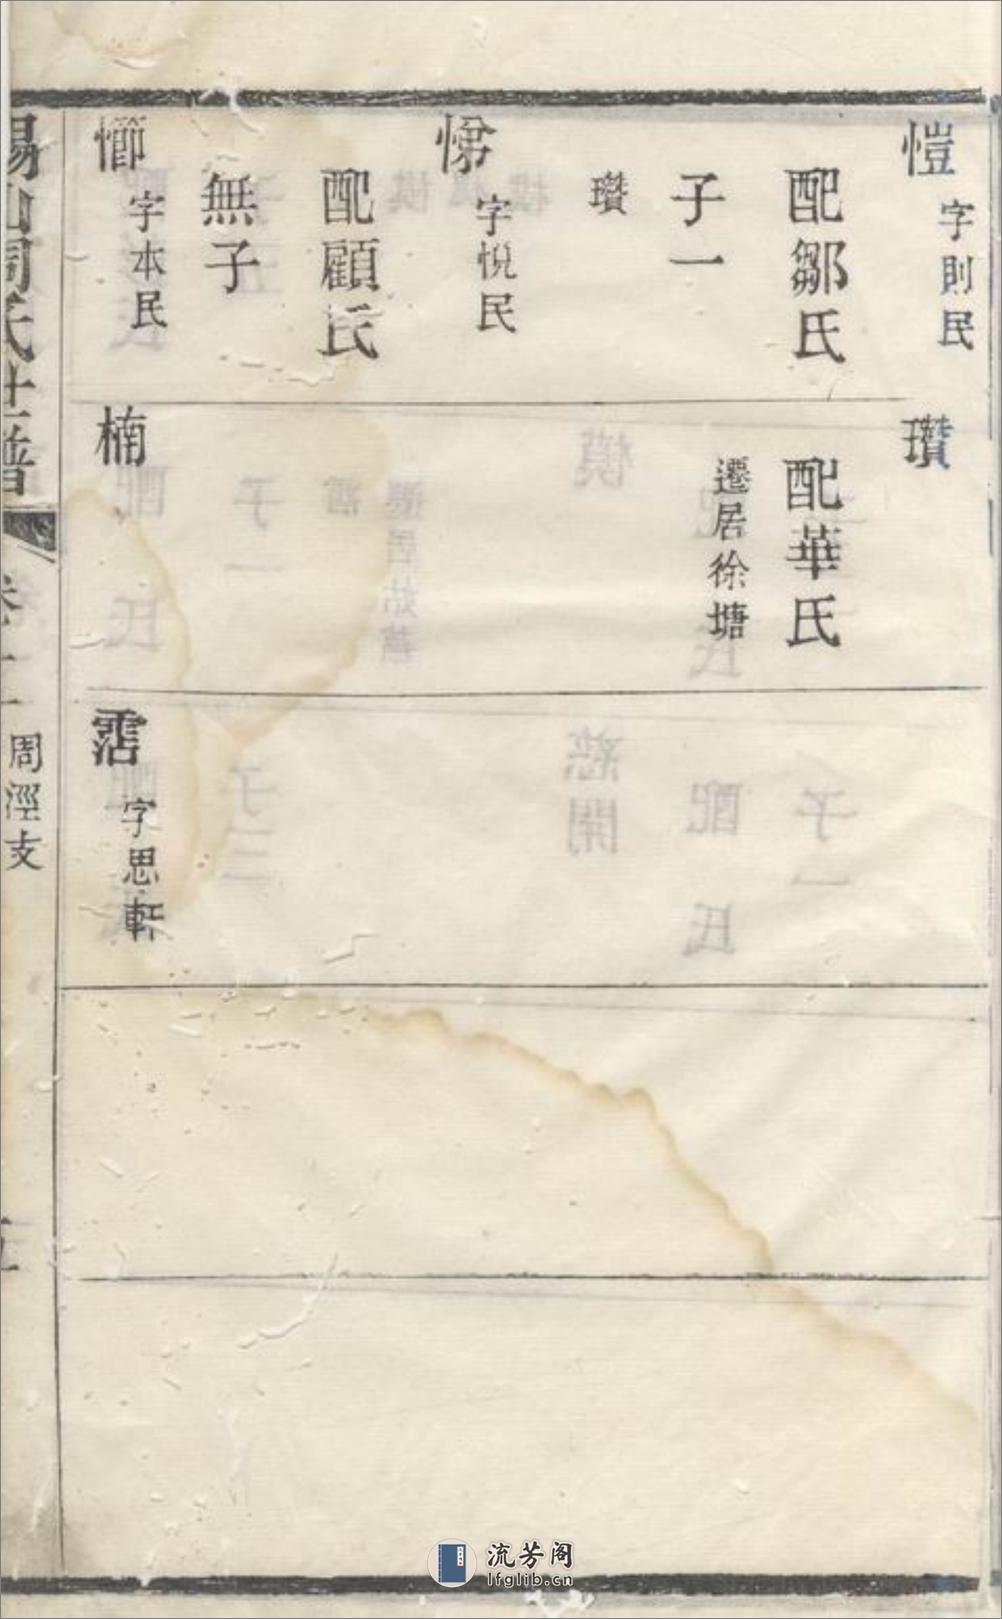 愷
字則民
配鄒氏
子一
瓚
悌
字悅民
配顧氏
無子
櫛
字本民
瓚
配華氏
遷居徐塘
楠
霑
字思軒
錫山周氏世譜
周涇支
流芳阁
lfglib.cn